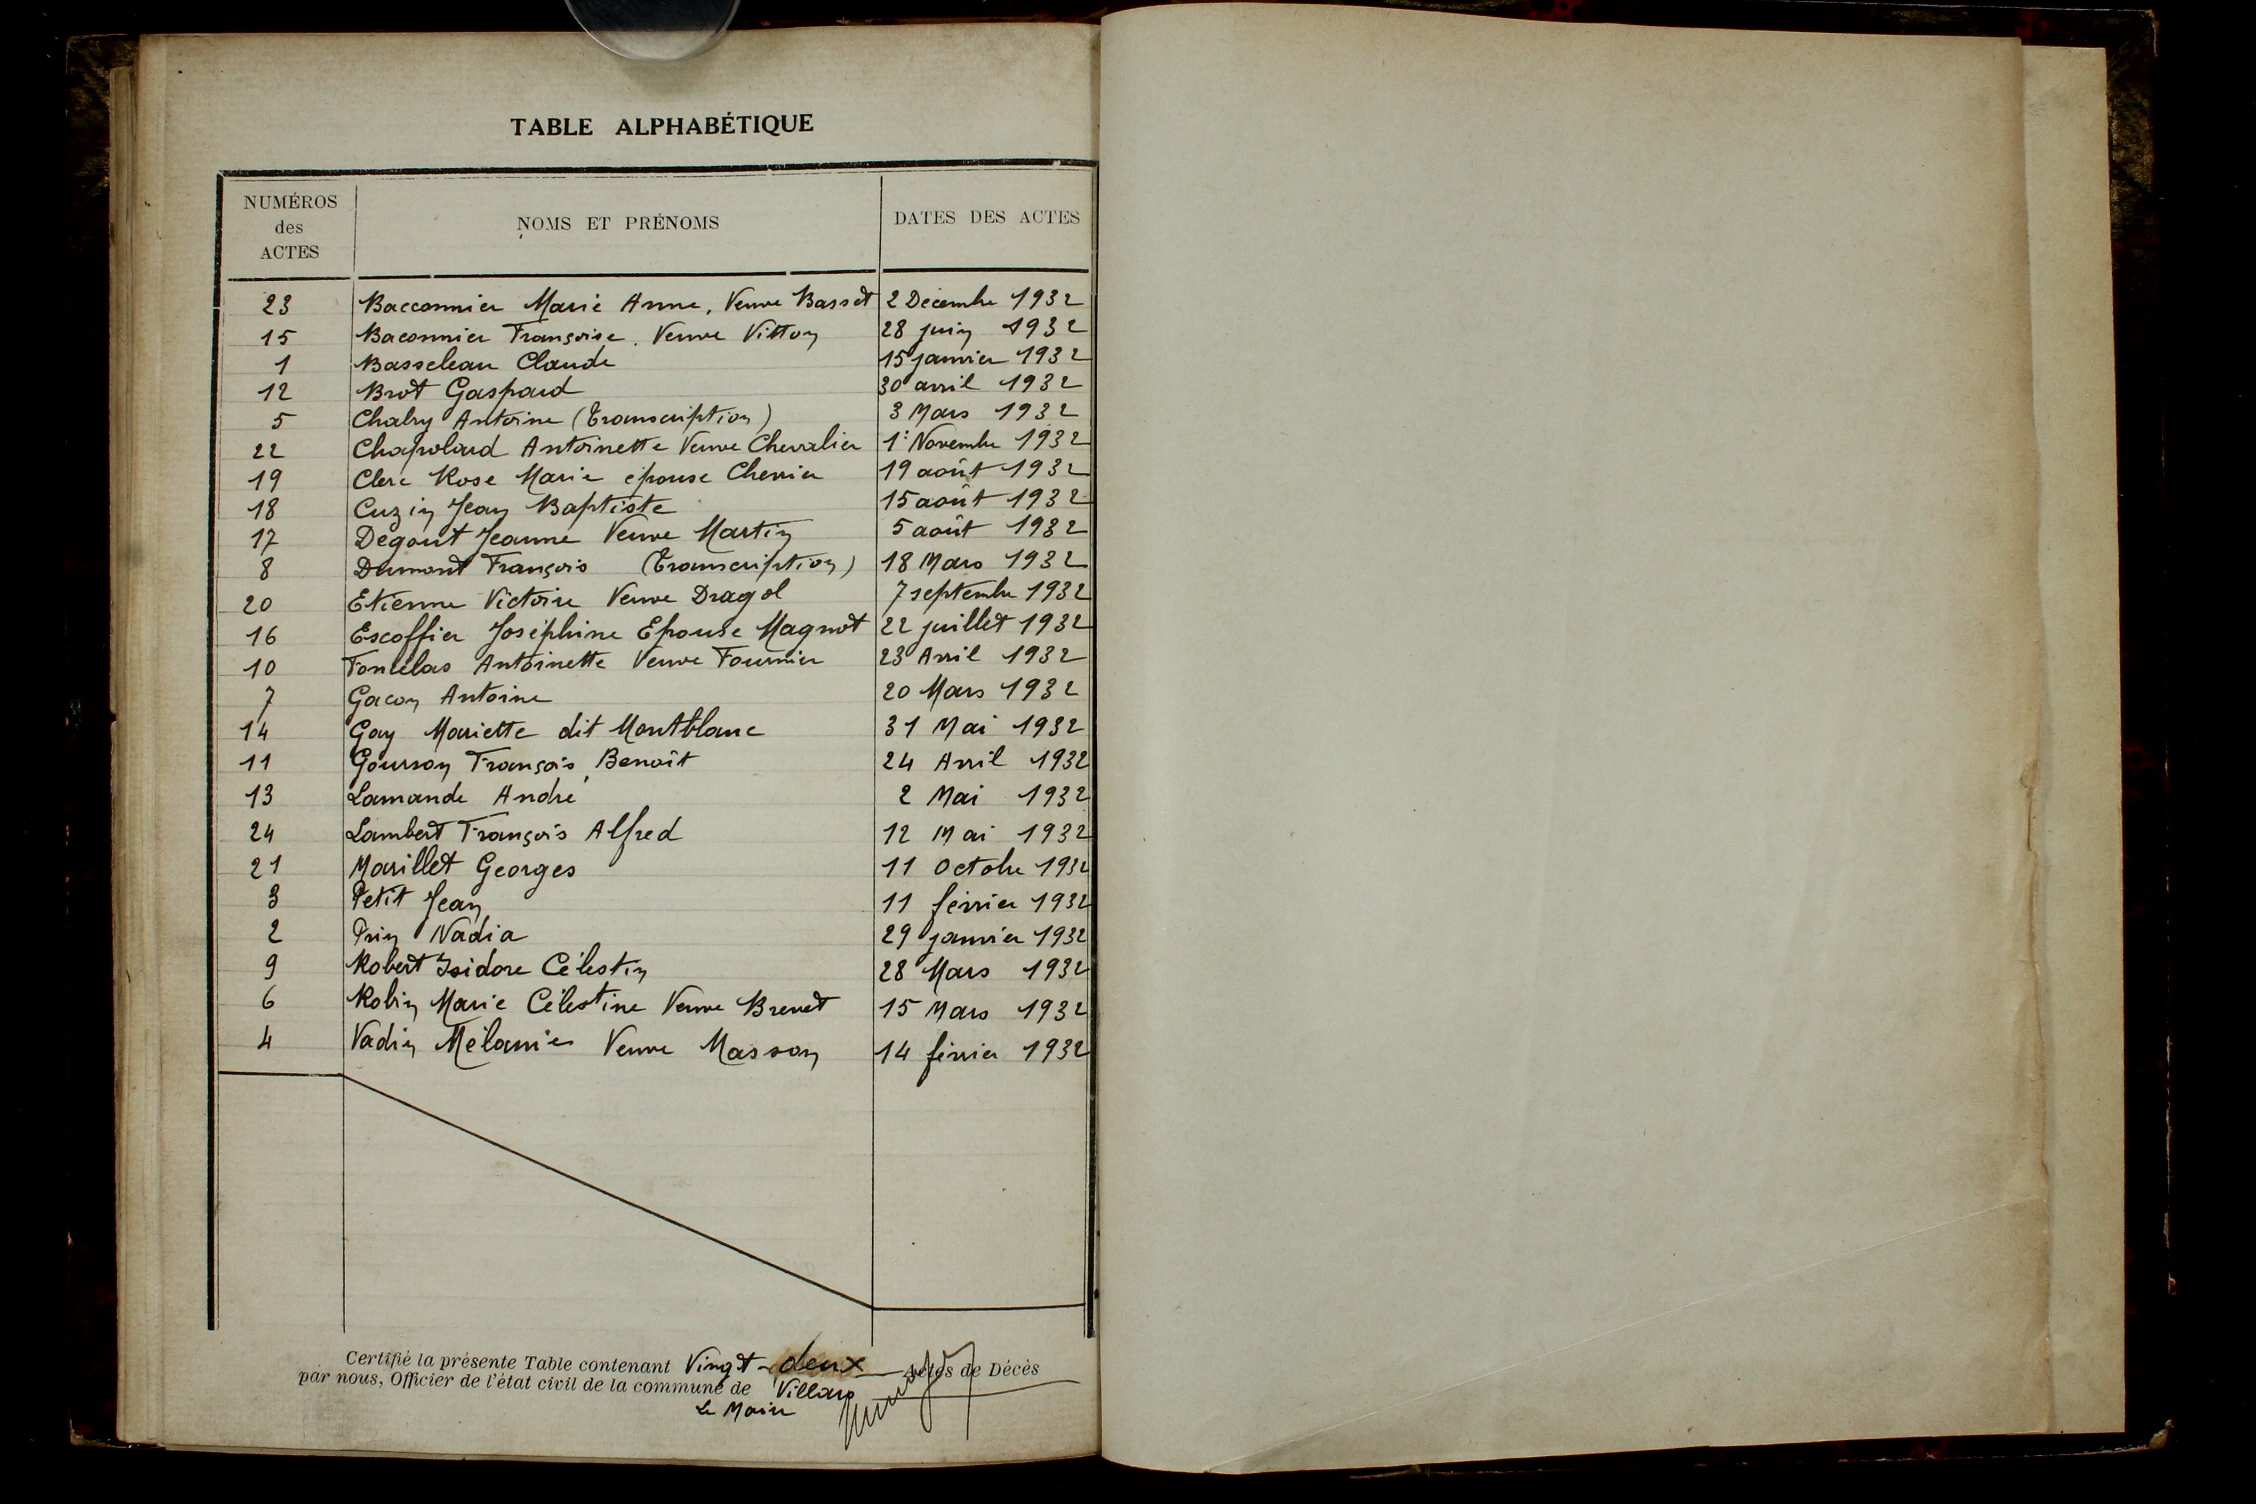 TABLE ALPHABÉTIQUE
NUMÉROS des ACTES NOMS ET PRÉNOMS DATES DES ACTES
23 Bacconnier Marie Anne, Veuve Basset 2 Décembre 1932
15 Baconnier Françoise. Veuve Vitton 28 juin 1932
1 Basseleau Claude 15 janvier 1932
12 Brot Gaspard 30 avril 1932
5 Chabry Antoine (Transcription) 3 Mars 1932
22 Chapolard Antoinette Veuve Chevalier 1: Novembre 1932
19 Clerc Rose Marie épouse Chevrier 19 août 1932
18 Cuzin Jean Baptiste 15 août 1932
17 Dégout Jeanne Veuve Martin 5 août 1932
8 Dumont François (Transcription) 18 Mars 1932
20 Etienne Victoire Veuve Dragol 7 septembre 1932
16 Escoffier Joséphine Epouse Magnot 22 juillet 1932
10 Fontelas Antoinette Veuve Fournier 23 Avril 1932
7 Gacon Antoine 20 Mars 1932
14 Gay Mariette dit Montblanc 31 Mai 1932
11 Gourson François Benoît 24 Avril 1932
13 Lamande André 2 Mai 1932
24 Lambert François Alfred 12 Mai 1932
21 Marillet Georges 11 Octobre 1932
3 Petit Jean 11 février 1932
2 Prin Nadia 29 janvier 1932
9 Robert Isidore Célestin 28 Mars 1932
6 Robin Marie Célestine Veuve Brevet 15 Mars 1932
4 Vadin Mélanie Veuve Masson 14 février 1932
Certifié la présente Table contenant Vingt-deux actes de Décès
par nous, Officier de l'état civil de la commune de Villars
Le Maire